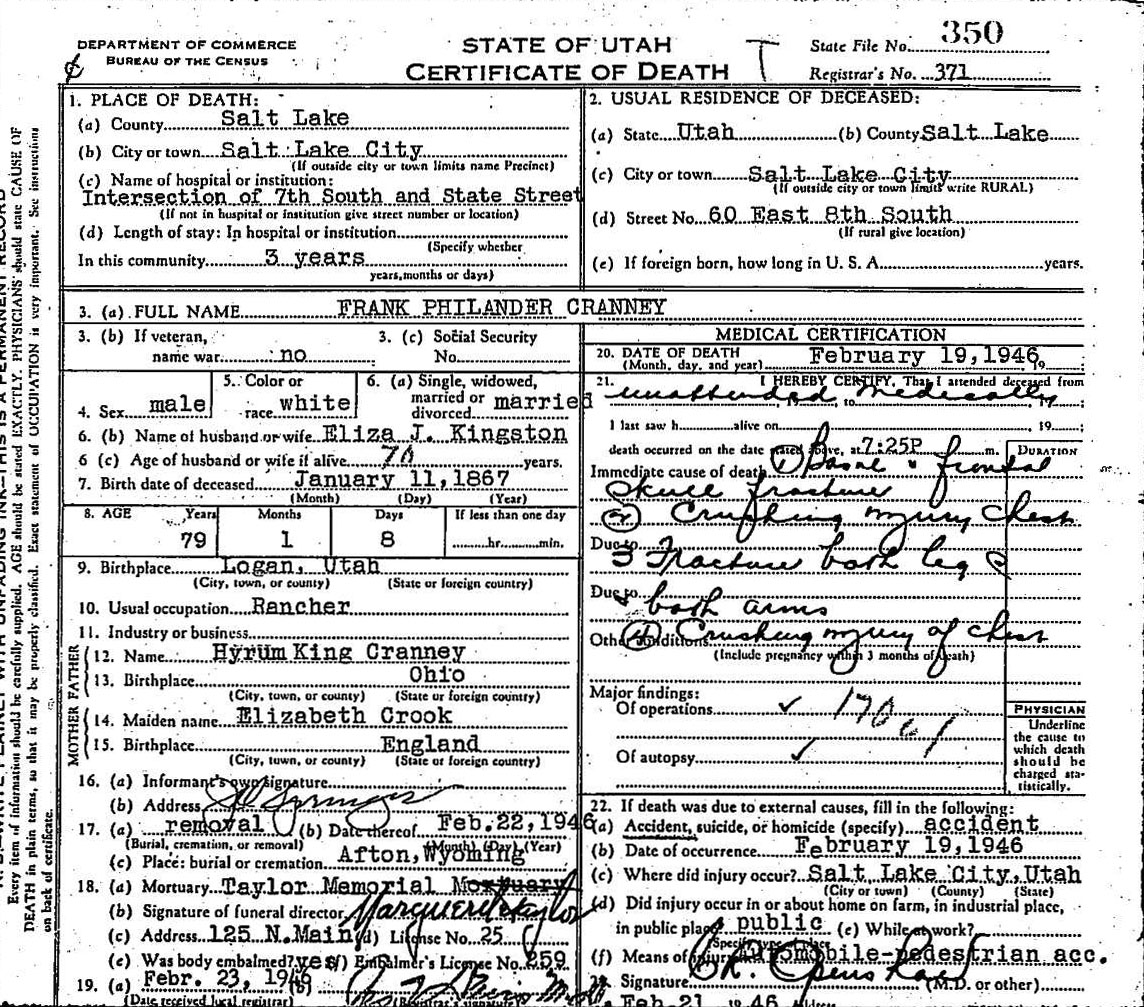 DEPARTMENT OF COMMERCE
BUREAU OF THE CENSUS
STATE OF UTAH
CERTIFICATE OF DEATH
State File No. 350
Registrar's No. 371
1. PLACE OF DEATH:
(a) County Salt Lake
(b) City or town Salt Lake City
(If outside city or town limits name Precinct)
(c) Name of hospital or institution:
Intersection of 7th South and State Street
(If not in hospital or institution give street number or location)
(d) Length of stay: In hospital or institution
(Specify whether
In this community 3 years
years, months or days)
2. USUAL RESIDENCE OF DECEASED:
(a) State Utah (b) County Salt Lake
(c) City or town Salt Lake City
(If outside city or town limits write RURAL)
(d) Street No. 60 East 8th South
(If rural give location)
(e) If foreign born, how long in U. S. A. years.
3. (a) FULL NAME FRANK PHILANDER CRANNEY
3. (b) If veteran, 3. (c) Social Security
name war no No.
4. Sex male 5. Color or race white 6. (a) Single, widowed, married or divorced married
6. (b) Name of husband or wife Eliza J. Kingston
6 (c) Age of husband or wife if alive 70 years.
7. Birth date of deceased January 11, 1867
(Month) (Day) (Year)
8. AGE Years Months Days If less than one day
79 1 8 hr. min.
9. Birthplace Logan, Utah
(City, town, or county) (State or foreign country)
10. Usual occupation Rancher
11. Industry or business
FATHER
12. Name Hyrum King Cranney
13. Birthplace Ohio
(City, town, or county) (State or foreign country)
MOTHER
14. Maiden name Elizabeth Crook
15. Birthplace England
(City, town, or county) (State or foreign country)
16. (a) Informant's own signature
(b) Address
17. (a) removal (b) Date thereof Feb. 22, 1946
(Burial, cremation, or removal) (Month) (Day) (Year)
(c) Place: burial or cremation Afton, Wyoming
18. (a) Mortuary Taylor Memorial Mortuary
(b) Signature of funeral director Marguerite Taylor
(c) Address 125 N. Main (d) License No. 25
(e) Was body embalmed? yes (f) Embalmer's License No. 259
19. (a) Febr. 23, 1946 (b)
(Date received local registrar) (Registrar's signature)
MEDICAL CERTIFICATION
20. DATE OF DEATH February 19, 1946 19
(Month, day, and year)
21. I HEREBY CERTIFY, That I attended deceased from
unattended medically
I last saw h alive on 19 ;
death occurred on the date stated above, at 7:25P m. DURATION
Immediate cause of death 1 Basal & frontal
skull fracture
2 Crushing injury chest
Due to
3 Fracture both leg
Due to
& both arms
Other conditions 4 Crushing injury of chest
(Include pregnancy within 3 months of death)
Major findings:
Of operations ✓ 170
Of autopsy ✓
PHYSICIAN
Underline
the cause to
which death
should be
charged sta-
tistically.
22. If death was due to external causes, fill in the following:
(a) Accident, suicide, or homicide (specify) accident
(b) Date of occurrence February 19, 1946
(c) Where did injury occur? Salt Lake City, Utah
(City or town) (County) (State)
(d) Did injury occur in or about home on farm, in industrial place,
in public place? public (e) While at work?
(Specify type of place)
(f) Means of injury automobile-pedestrian acc.
Signature (M.D. or other)
Feb 21 46 Address
Every item of information should be carefully supplied. AGE should be stated EXACTLY. PHYSICIANS should state CAUSE OF
DEATH in plain terms, so that it may be properly classified. Exact statement of OCCUPATION is very important. See instructions
on back of certificate.